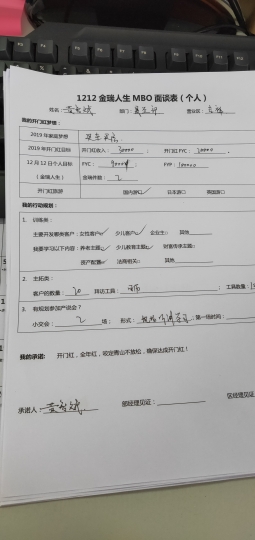 1212 金瑞人生 MBO 面谈表（个人）
姓名： 部门： 营业区：
我的开门红梦想：
2019 年家庭梦想 买车买房
2019 年开门红目标 开门红收入： 30000 开门红 FYC： 30000
12 月 12 日个人目标 FYC： FYP：
（金瑞人生） 金瑞件数： 2
开门红旅游 国内游 日本游 泰国游
我的行动规划：
1. 训练类：
主要开发哪类客户：女性客户 少儿客户 企业主 其他
我要学习以下内容：养老主题 少儿教育主题 财富传承主题
资产配置 法商相关 其他
2. 主拓类：
客户的数量： 30 拜访工具： 工具数量
3. 有规划参加产说会？
小交会： 2 场； 形式： 第一场时间：
我的承诺： 开门红，全年红，咬定青山不放松，确保达成开门红！
承诺人： 部经理见证： 区经理见证